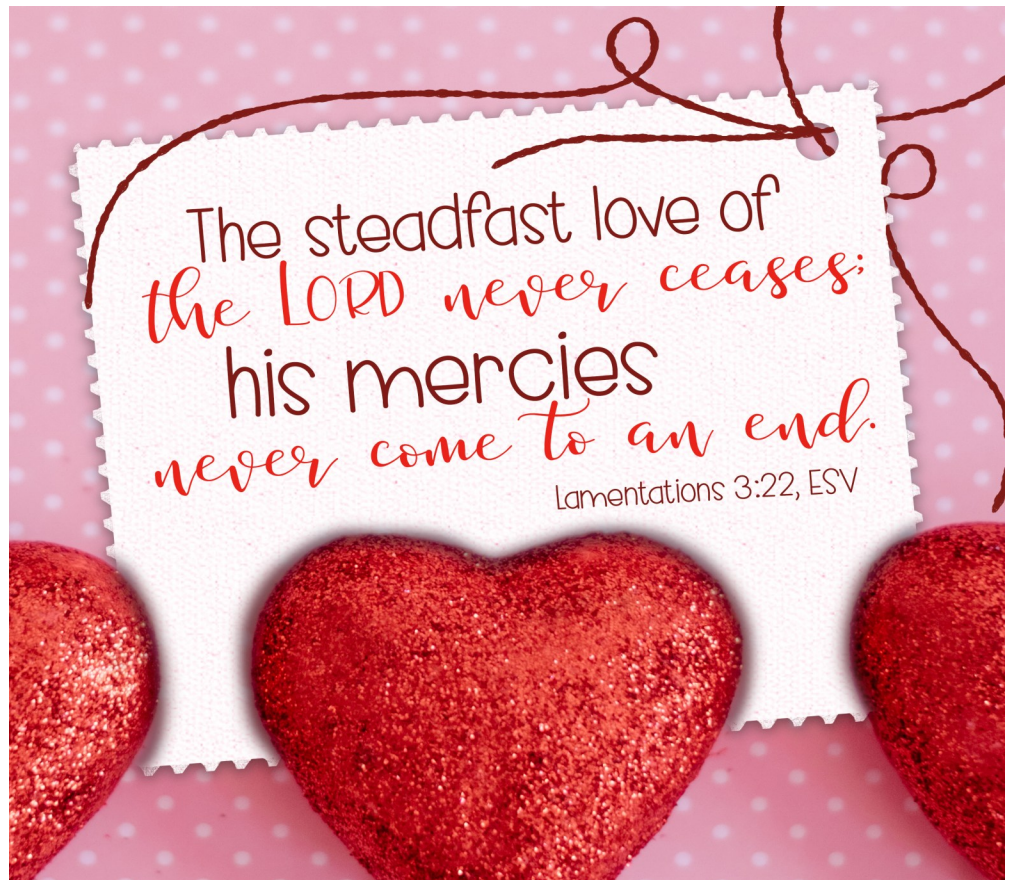 The steadfast love of
the LORD never ceases;
his mercies
never come to an end.
Lamentations 3:22, ESV